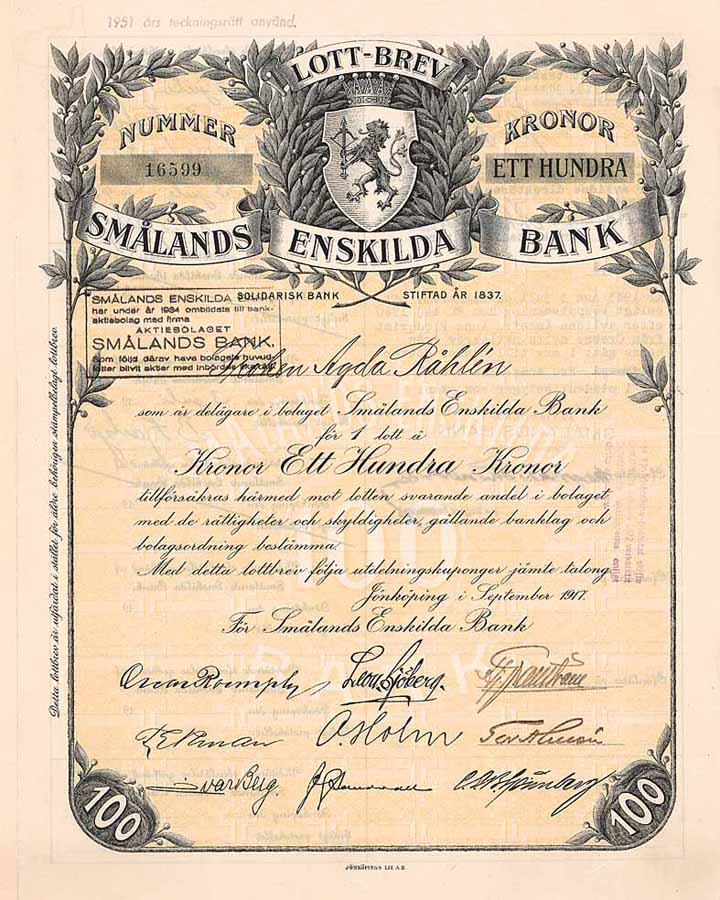 1951 års teckningsrätt använd.
LOTT-BREV
NUMMER
16599
KRONOR
ETT HUNDRA
SMÅLANDS ENSKILDA BANK
SOLIDARISK BANK STIFTAD ÅR 1837.
SMÅLANDS ENSKILDA
har under år 1934 ombildats till bank-
aktiebolag med firma
AKTIEBOLAGET
SMÅLANDS BANK.
Som följd därav hava bolagets huvud-
lotter blivit aktier med
Agda Råhlén
som är delägare i bolaget Smålands Enskilda Bank
för 1 lott à
Kronor Ett Hundra Kronor
tillförsäkras härmed mot lotten svarande andel i bolaget
med de rättigheter och skyldigheter, gällande banklag och
bolagsordning bestämma.
Med detta lottbrev följa utdelningskuponger jämte talong.
Jönköping i September 1917.
För Smålands Enskilda Bank
Oscar
Leon Sjöberg.
Ekman
A. Holm
Ivar Berg.
100
100
Detta lottbrev är utfärdat i stället för äldre behörigen stämpelbelagt lottbrev.
JÖNKÖPINGS LIT. A.B.